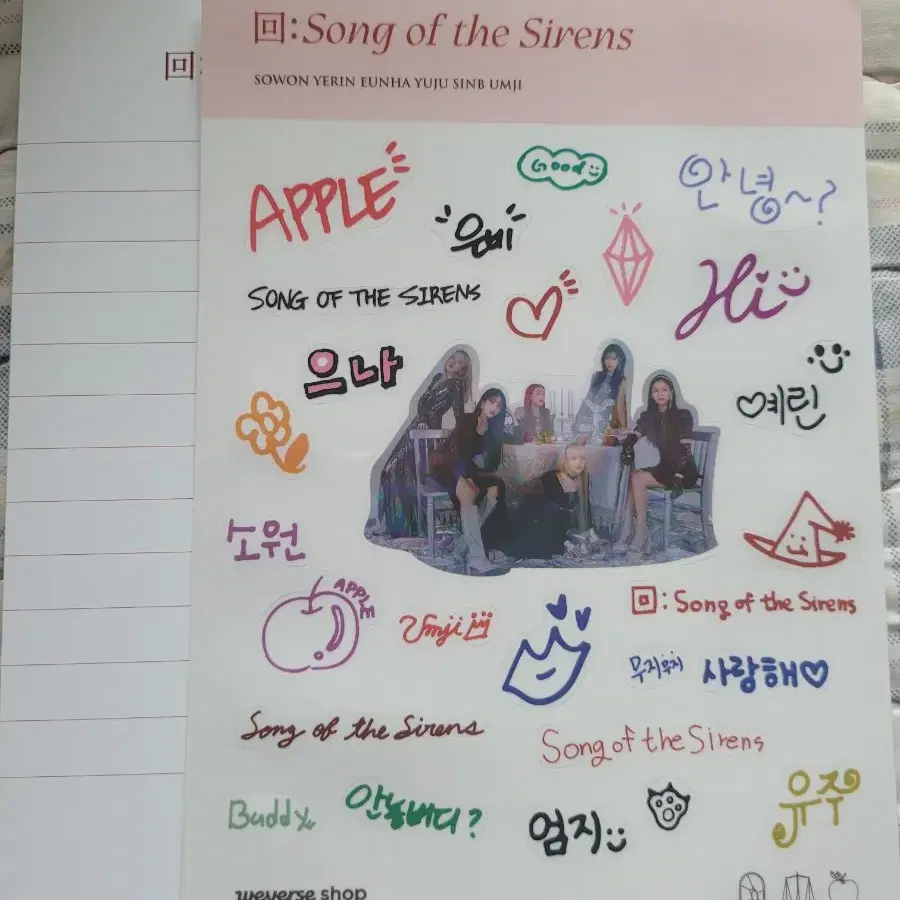 回:
回:Song of the Sirens
SOWON YERIN EUNHA YUJU SINB UMJI
APPLE
Good
안녕~?
SONG OF THE SIRENS
Hi
으나
예린
소원
APPLE
Umji
回:Song of the Sirens
무지무지 사랑해♡
Song of the Sirens
Song of the Sirens
Buddy
엄지
유주
weverse shop